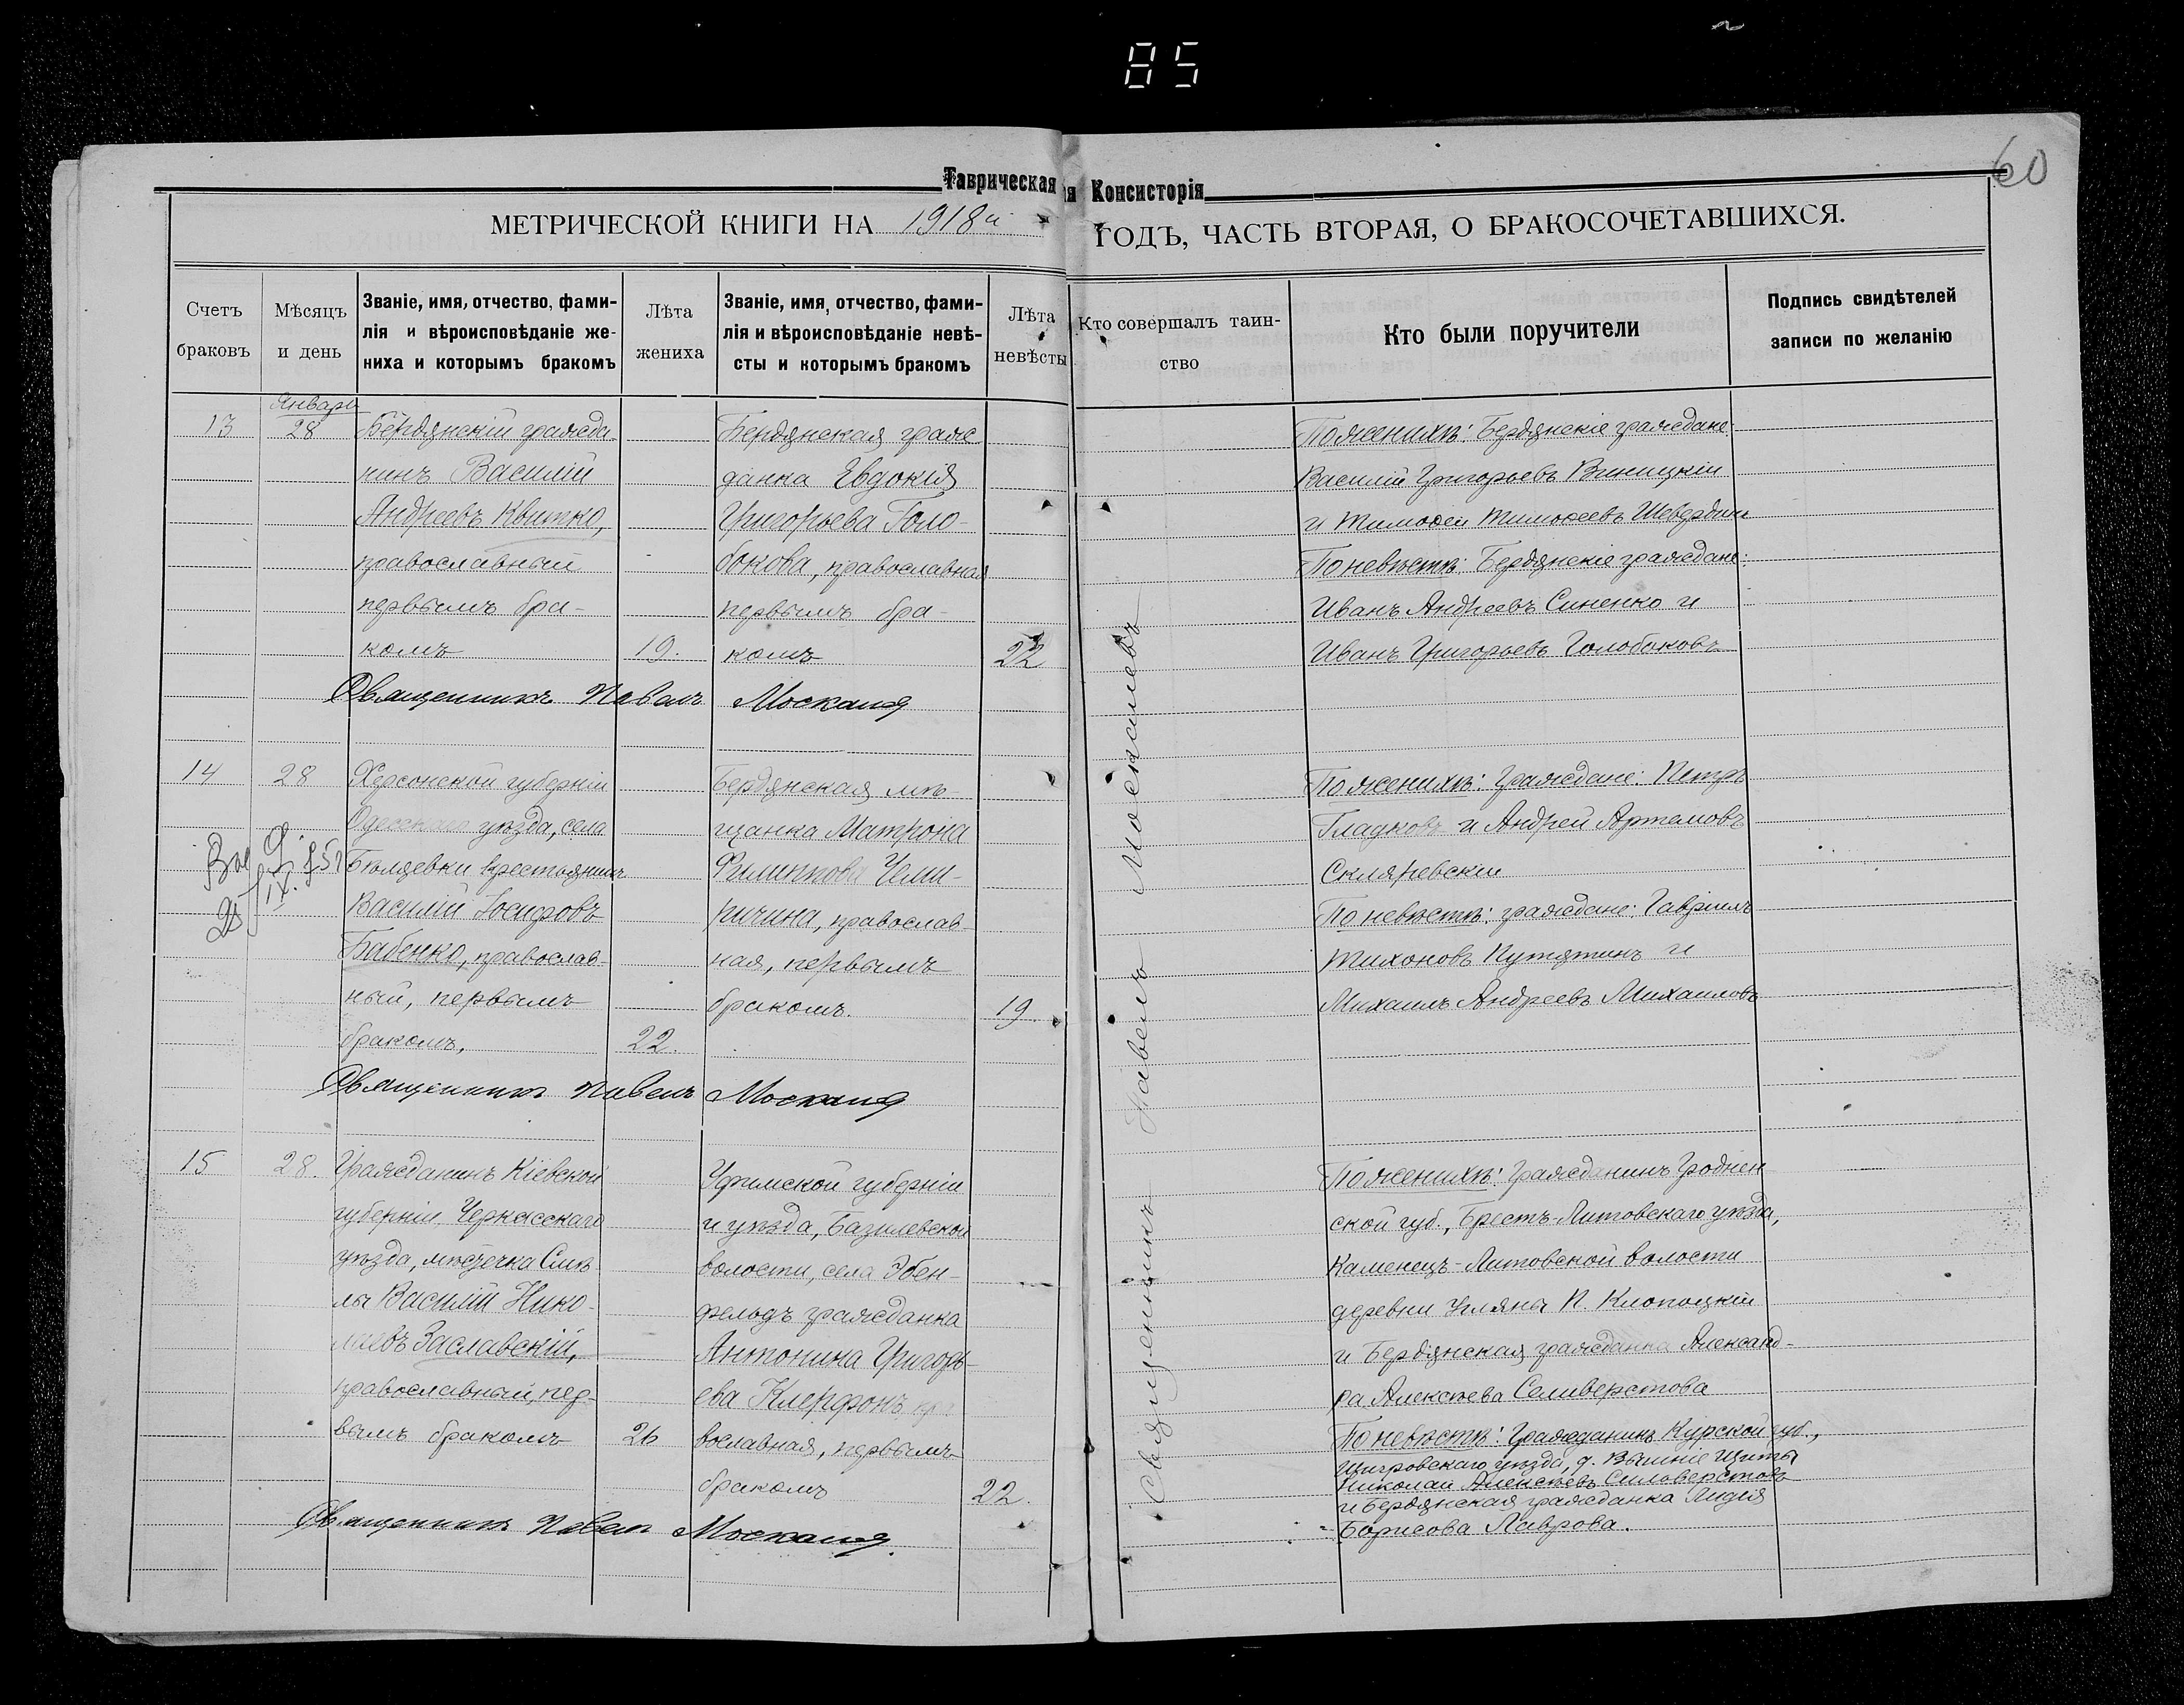 85
60
Таврическая Консисторія
МЕТРИЧЕСКОЙ КНИГИ НА 1918й ГОДЪ, ЧАСТЬ ВТОРАЯ, О БРАКОСОЧЕТАВШИХСЯ.
Счетъ браковъ
Мѣсяцъ и день
Званіе, имя, отчество, фами-
лія и вѣроисповѣданіе же-
ниха и которымъ бракомъ
Лѣта жениха
Званіе, имя, отчество, фами-
лія и вѣроисповѣданіе невѣ-
сты и которымъ бракомъ
Лѣта невѣсты
Кто совершалъ таин-
ство
Кто были поручители
Подпись свидѣтелей
записи по желанію
13
Январь
28
Бердянскій гражда-
нинъ Василій
Андреевъ Квитко,
православный
первымъ бра-
комъ
19.
Бердянская граж
данка Евдокія
Григорьева Голо-
бокова, православная
первымъ бра-
комъ
22
По женихѣ: Бердянскіе граждане
Василій Григорьевъ Виницкій
и Тимоѳей Тимоѳеевъ
По невѣстѣ: Бердянскіе граждане:
Иванъ Андреевъ Синенко и
Иванъ Григорьевъ Голобоковъ
Священникъ Павелъ
14
28
Херсонской губерніи
Одесскаго уѣзда, села
Бѣляевки крестьянинъ
Василій Іосифовъ
Бабенко, православ-
ный, первымъ
бракомъ,
22.
Бердянская мѣ-
щанка Матрона
Филиппова Чеми-
ричина, православ-
ная, первымъ
бракомъ.
19
По женихѣ: Граждане: Петръ
Гладковъ и Андрей Артемовъ
Скляревскіи
По невѣстѣ: граждане: Гавріилъ
Тихоновъ Путятинъ и
Михаилъ Андреевъ Михаиловъ
Священникъ Павелъ
15
28
Гражданинъ Кіевской
губерніи, Черкасскаго
уѣзда, мѣстечка Смѣ
лы Василій Нико-
лаевъ Заславскій,
православный, пер-
вымъ бракомъ
26
Уфимской губерніи
и уѣзда, Базилевской
волости, села Эбен-
фельдъ гражданка
Антонина Григорь-
ева Клерфонъ пра
вославная, первымъ
бракомъ
22.
По женихѣ: Гражданинъ Гроднен
ской губ., Брестъ-Литовскаго уѣзда,
Каменецъ-Литовской волости
деревни Угляны П. Клопоцкій
и Бердянская гражданка Александ-
ра Алексѣева Селиверстова
По невѣстѣ: Гражданинъ Курской губ.,
Щигровскаго уѣзда, д. Вышніе Щиты
Николай Алексѣевъ Силоверстовъ
и Бердянская гражданка Лидія
Борисова Лаврова.
Священникъ Павелъ
Священникъ Павелъ